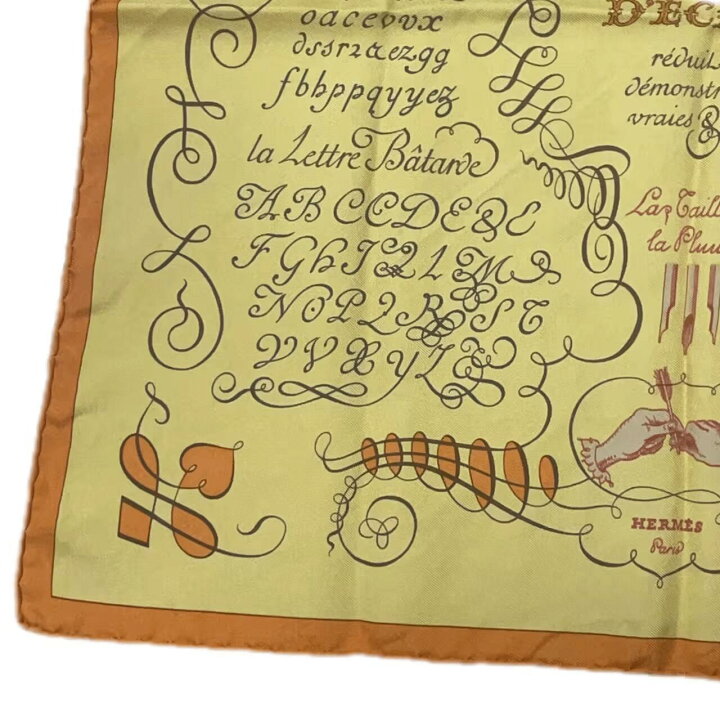 oaceovx
dssrzaezgg
fbhppqyyez
la Lettre Bâtarde
ABCCDEE
FGhI2LM
NOP2RSTT
VVXYZ
D'EC
réduit
démonstr
vraies &
Las Taill
la Plum
HERMÈS
Paris